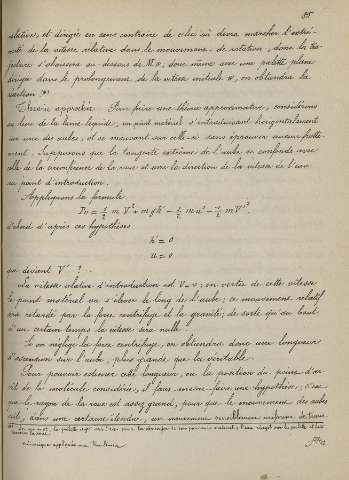 85
relative, et dirigée en sens contraire de celui où devra marcher l'extré-
mité de la vitesse relative dans le mouvement de rotation, donc la tra-
jectoire s'abaissera au-dessous de M v, donc même avec une palette plane
dirigée dans le prolongement de la vitesse initiale v, on obtiendra la
réaction (*)
Théorie approchée Pour faire une théorie approximative, considérons
au lieu de la lame liquide, un point matériel s'introduisant horizontalement
sur une des aubes, et se mouvant sur celle-ci sans éprouver aucun frotte-
ment – supposons que la tangente extrême de l'aube se confonde avec
celle de la circonférence de la roue et avec la direction de la vitesse de l'eau
au point d'introduction.
Appliquons la formule
Pv = 1/2 m V² + mgh' - 1/2 m u² - 1/2 m V'²
d'abord d'après ces hypothèses
h' = 0
u = 0
que devient V' ?
La vitesse relative d'introduction est V - v ; en vertu de cette vitesse
le point matériel va s'élever le long de l'aube ; ce mouvement relatif
sera retardé par la force centrifuge et la gravité, de sorte qu'au bout
d'un certain temps la vitesse sera nulle.
Si on néglige la force centrifuge, on obtiendra donc une longueur
d'ascension sur l'aube, plus grande que la véritable.
Pour pouvoir estimer cette longueur, ou la position du point d'ar-
rêt de la molécule considérée, il faut encore faire une hypothèse ; c'est
que le rayon de la roue est assez grand, pour que le mouvement des aubes
soit, dans une certaine étendue, un mouvement sensiblement uniforme de trans-